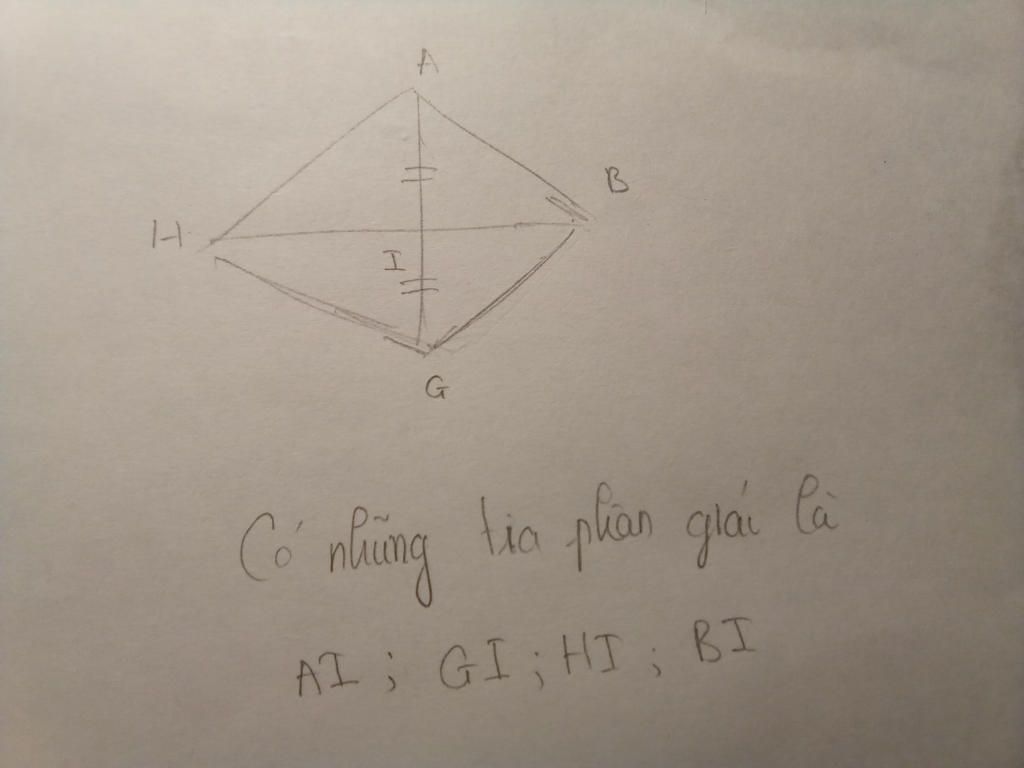 A
B
H
I
G
Có những tia phân giác là
AI ; GI ; HI ; BI